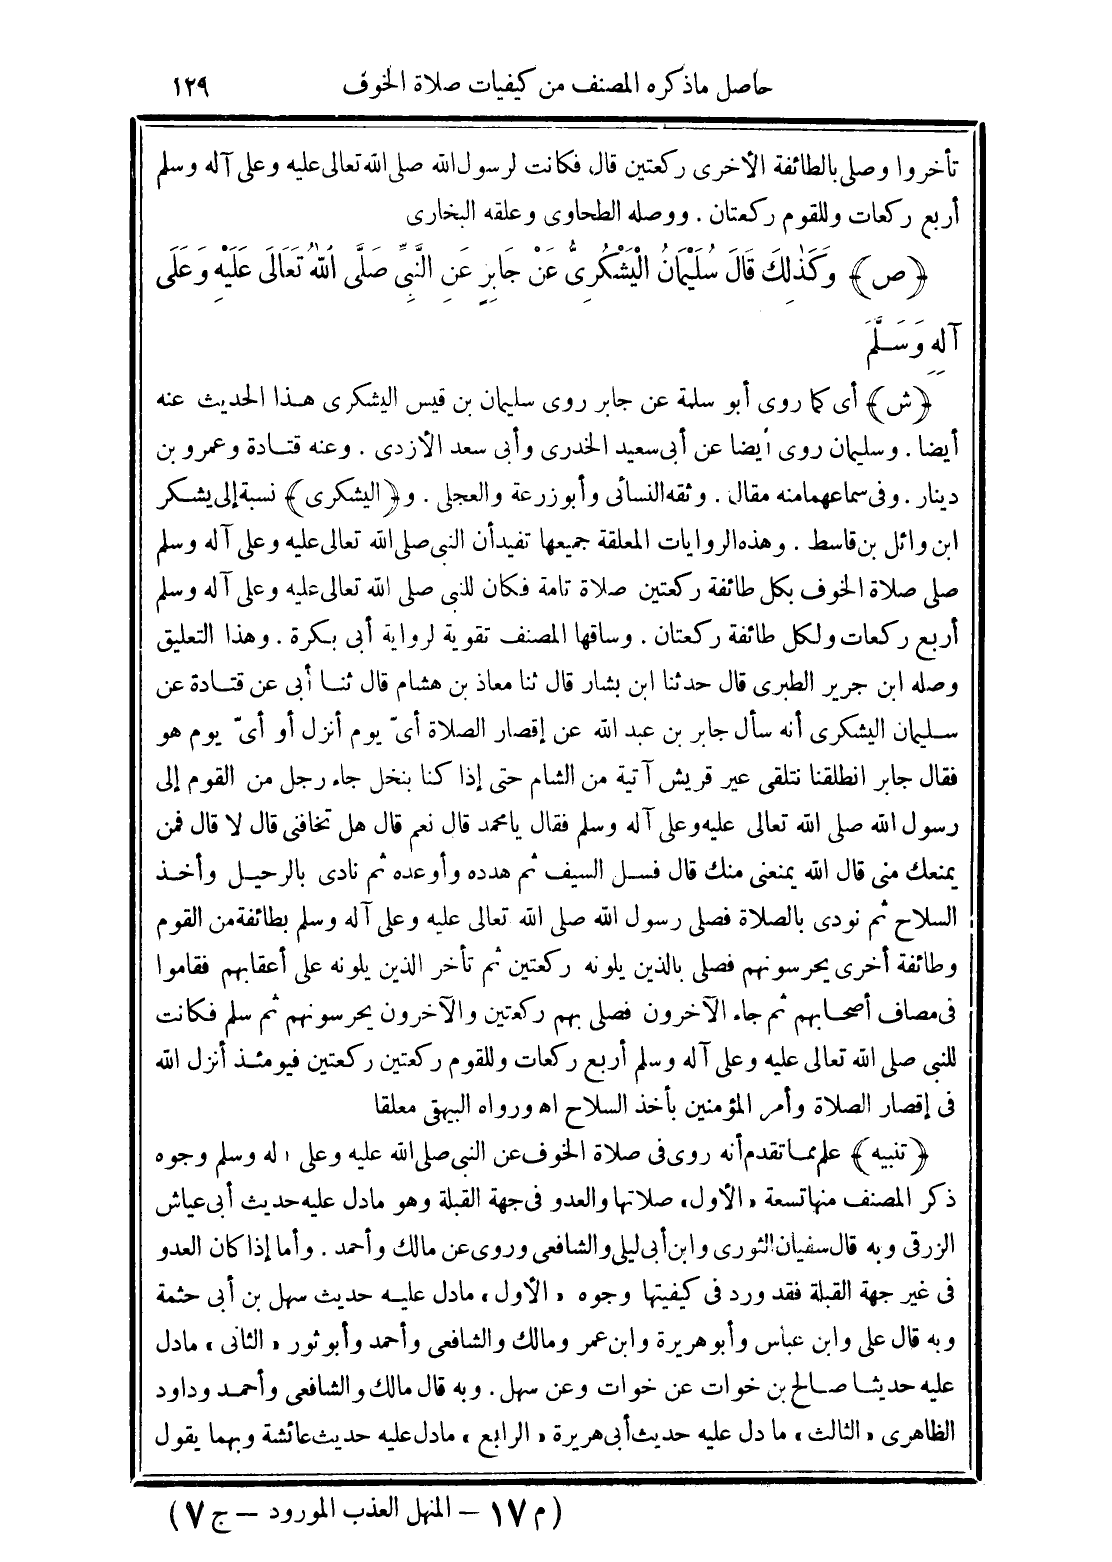 حاصل ماذكره المصنف من كيفيات صلاة الخوف ١٢٩
تأخروا وصلى بالطائفة الأخرى ركعتين قال فكانت لرسول الله صلى الله تعالى عليه وعلى آله وسلم
أربع ركعات وللقوم ركعتان . ووصله الطحاوى وعلقه البخارى
﴿ص﴾ وَكَذٰلِكَ قَالَ سُلَيْمَانُ الْيَشْكُرِىُّ عَنْ جَابِرٍ عَنِ النَّبِىِّ صَلَّى اللهُ تَعَالَى عَلَيْهِ وَعَلَى
آلِهِ وَسَلَّمَ
﴿ش﴾ أى كما روى أبو سلمة عن جابر روى سليمان بن قيس اليشكرى هذا الحديث عنه
أيضا . وسليمان روى أيضا عن أبى سعيد الخدرى وأبى سعد الأزدى . وعنه قتادة وعمرو بن
دينار . وفى سماعهما منه مقال . وثقه النسائى وأبو زرعة والعجلى . و﴿اليشكرى﴾ نسبة إلى يشكر
ابن وائل بن قاسط . وهذه الروايات المعلقة جميعها تفيد أن النبى صلى الله تعالى عليه وعلى آله وسلم
صلى صلاة الخوف بكل طائفة ركعتين صلاة تامة فكان للنبى صلى الله تعالى عليه وعلى آله وسلم
أربع ركعات ولكل طائفة ركعتان . وساقها المصنف تقوية لرواية أبى بكرة . وهذا التعليق
وصله ابن جرير الطبرى قال حدثنا ابن بشار قال ثنا معاذ بن هشام قال ثنا أبى عن قتادة عن
سليمان اليشكرى أنه سأل جابر بن عبد الله عن إقصار الصلاة أىّ يوم أنزل أو أىّ يوم هو
فقال جابر انطلقنا نتلقى عير قريش آتية من الشام حتى إذا كنا بنخل جاء رجل من القوم إلى
رسول الله صلى الله تعالى عليه وعلى آله وسلم فقال يامحمد قال نعم قال هل تخافنى قال لا قال فمن
يمنعك منى قال الله يمنعنى منك قال فسل السيف ثم هدده وأوعده ثم نادى بالرحيل وأخذ
السلاح ثم نودى بالصلاة فصلى رسول الله صلى الله تعالى عليه وعلى آله وسلم بطائفة من القوم
وطائفة أخرى يحرسونهم فصلى بالذين يلونه ركعتين ثم تأخر الذين يلونه على أعقابهم فقاموا
فى مصاف أصحابهم ثم جاء الآخرون فصلى بهم ركعتين والآخرون يحرسونهم ثم سلم فكانت
للنبى صلى الله تعالى عليه وعلى آله وسلم أربع ركعات وللقوم ركعتين ركعتين فيومئذ أنزل الله
فى إقصار الصلاة وأمر المؤمنين بأخذ السلاح اه ورواه البيهقى معلقا
﴿تنبيه﴾ علم مما تقدم أنه روى فى صلاة الخوف عن النبى صلى الله عليه وعلى اله وسلم وجوه
ذكر المصنف منها تسعة «الأول» صلاتها والعدو فى جهة القبلة وهو مادل عليه حديث أبى عياش
الزرقى وبه قال سفيان الثورى وابن أبى ليلى والشافعى وروى عن مالك وأحمد . وأما إذا كان العدو
فى غير جهة القبلة فقد ورد فى كيفيتها وجوه «الأول» مادل عليه حديث سهل بن أبى حثمة
وبه قال على وابن عباس وأبو هريرة وابن عمر ومالك والشافعى وأحمد وأبو ثور «الثانى» مادل
عليه حديثا صالح بن خوات عن خوات وعن سهل . وبه قال مالك والشافعى وأحمد وداود
الظاهرى «الثالث» ما دل عليه حديث أبى هريرة «الرابع» مادل عليه حديث عائشة وبهما يقول
(م ١٧ – المنهل العذب المورود – ج ٧)